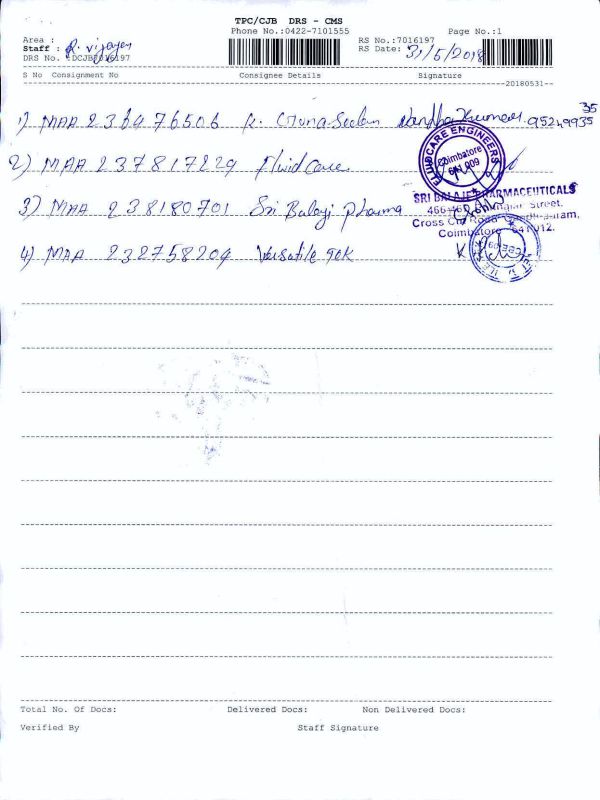 TPC/CJB DRS - CMS
Phone No.:0422-7101555 Page No.:1
Area :
Staff : R. Vijayan
DRS No. :DCJB7016197
RS No.:7016197
RS Date: 31/5/2018
S No Consignment No Consignee Details Signature
20180531--
1) MAA 236476506 K. Gunaseelan Nandhakumar. 95249935
35
2) MAA 237817229 Fluid Care
FLUIDCARE ENGINEERS
Coimbatore
641 009
3) MAA 238180701 Sri Balaji Pharma
SRI BALAJI PHARMACEUTICALS
Street.
Cross Cut Road
Coimbatore 641 012.
4) MAA 232758204 Versatile Tek
Total No. Of Docs: Delivered Docs: Non Delivered Docs:
Verified By Staff Signature